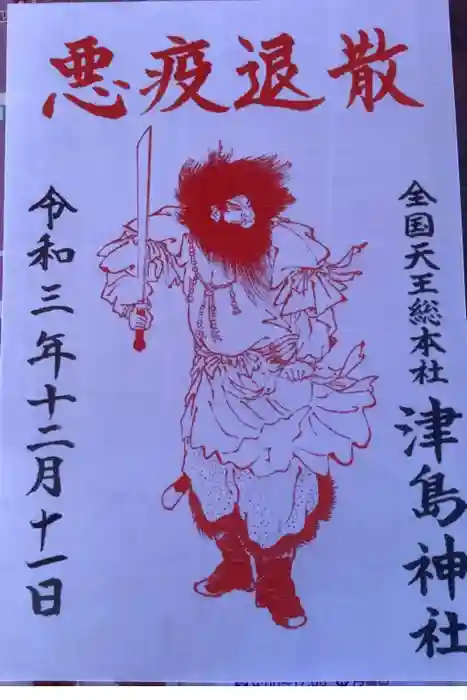 悪疫退散
全国天王総本社
津島神社
令和三年十二月十一日